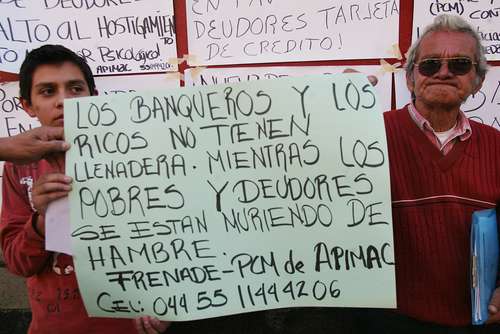 DEUDORES
ALTO al HOSTIGAMIENTO
POR Psicológico
APIMAC
DEUDORES TARJETA
DE CREDITO!
(PCM)
LOS BANQUEROS Y LOS
RICOS NO TIENEN
LLENADERA. MIENTRAS LOS
POBRES Y DEUDORES
SE ESTAN MURIENDO DE
HAMBRE.
FRENADE-PCM de APIMAC
CEL: 044 55 11444206